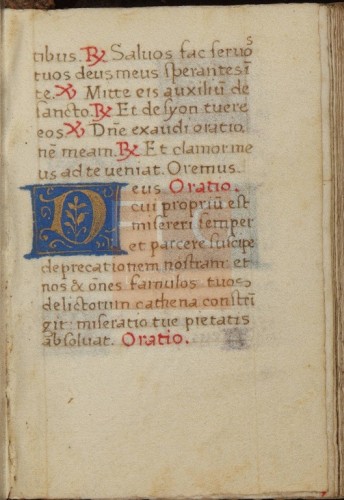 s
tibus. ℟ Saluos fac seruo
tuos deus meus sperantes ī
te. ℣ Mitte eis auxiliū de
sancto. ℟ Et de syon tuere
eos ℣ Dn̄e exaudi oratio
nē meam. ℟ Et clamor me
us ad te ueniat. Oremus
Deus Oratio.
cui propriū est
misereri semper
et parcere suscipe
deprecationem nostram: et
nos & ōnes famulos tuos
delictorum cathena constrī
git: miseratio tue pietatis
absoluat. Oratio.